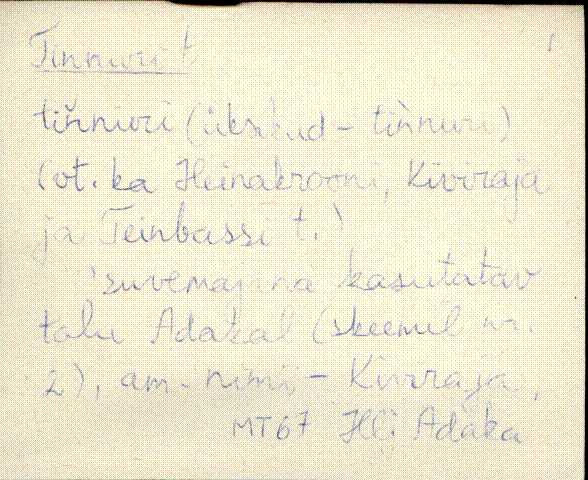 Tinnuri t
tiǹnuri (üksikud - tiǹnuri)
(vt. ka Heinakrooni, Kivvraja
ja Teinbassi t.)
'suvemajana kasutatav
talu Adakal (skeemil nr.
2), am. nimi - Kivvraja,
MT67 Hli Adaka